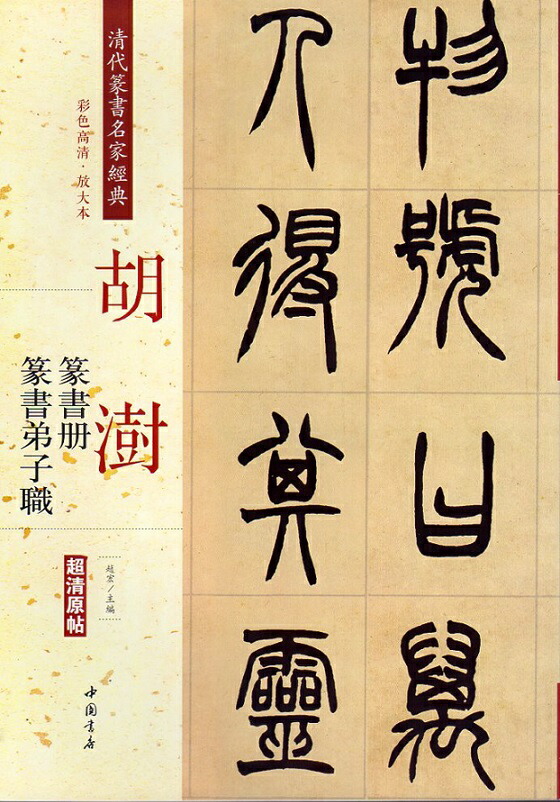 清代篆書名家經典
彩色高清·放大本
胡澍
篆書册
篆書弟子職
趙宏/主編
超清原帖
中国书店
物號曰萬
人得其靈